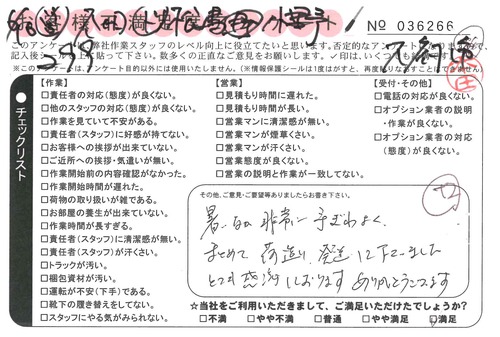 お客様満足度
№ 036266
このアンケートは、弊社作業スタッフのレベル向上に役立てたいと思います。否定的な
記入後シールを上に貼って下さい。数多くの正直なご意見をお願いします。
チェックリスト
【作業】
□責任者の対応(態度)が良くない。
□他のスタッフの対応(態度)が良くない。
□作業を見ていて不安がある。
□責任者(スタッフ)に好感が持てない。
□お客様への挨拶が出来ていない。
□ご近所への挨拶・気遣いが無い。
□作業開始前の内容確認がなかった。
□作業開始時間が遅れた。
□荷物の取り扱いが雑である。
□お部屋の養生が出来ていない。
□作業時間が長すぎる。
□責任者(スタッフ)に清潔感が無い。
□責任者(スタッフ)が汗くさい。
□トラックが汚い。
□梱包資材が汚い。
□運転が不安(下手)である。
□靴下の履き替えをしてない。
□スタッフにやる気がみられない。
【営業】
□見積もり時間に遅れた。
□見積もり時間が長い。
□営業マンに清潔感が無い。
□営業マンが煙草くさい。
□営業マンが汗くさい。
□営業態度が良くない。
□営業の説明と作業が一致してない。
【受付・その他】
□電話の対応が良くない。
□オプション業者の説明
・作業が良くない。
□オプション業者の対応
(態度)が良くない。
その他、ご意見・ご要望等ありましたらお書き下さい。
暑い日の非常に手ぎわよく、
まとめて荷造り発送に下さいました
とても感謝しております ありがとうございます
☆当社をご利用いただきまして、ご満足いただけたでしょうか?
□不満 □やや不満 □普通 □やや満足 □満足